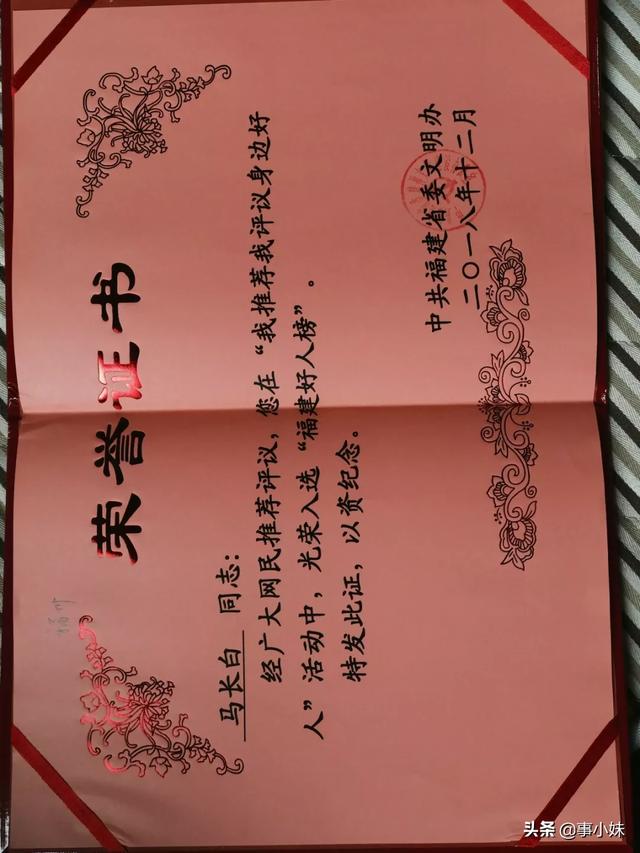 福州
荣誉证书
马长白 同志：
经广大网民推荐评议，您在“我推荐我评议身边好
人”活动中，光荣入选“福建好人榜”。
特发此证，以资纪念。
中共福建省委文明办
二〇一八年十二月
头条 @事小妹